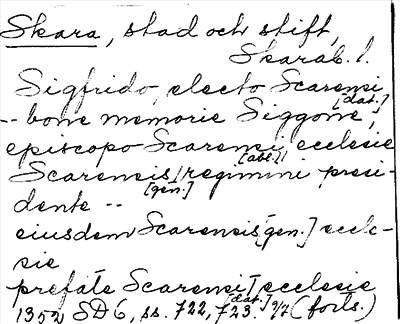 Skara, stad och stift,
Skarab. l.
Sigfrido, electo Scarensi [dat.]
-- bone memorie Siggone,
episcopo Scarensi [abl.], ecclesie
Scarensis [gen.] regimini presi-
dente --
eiusdem Scarensis [gen.] eccle-
sie
prefate Scarensi [dat.] ecclesie
1352 SD 6, ss. 722, 723. 9/7 (forts.)